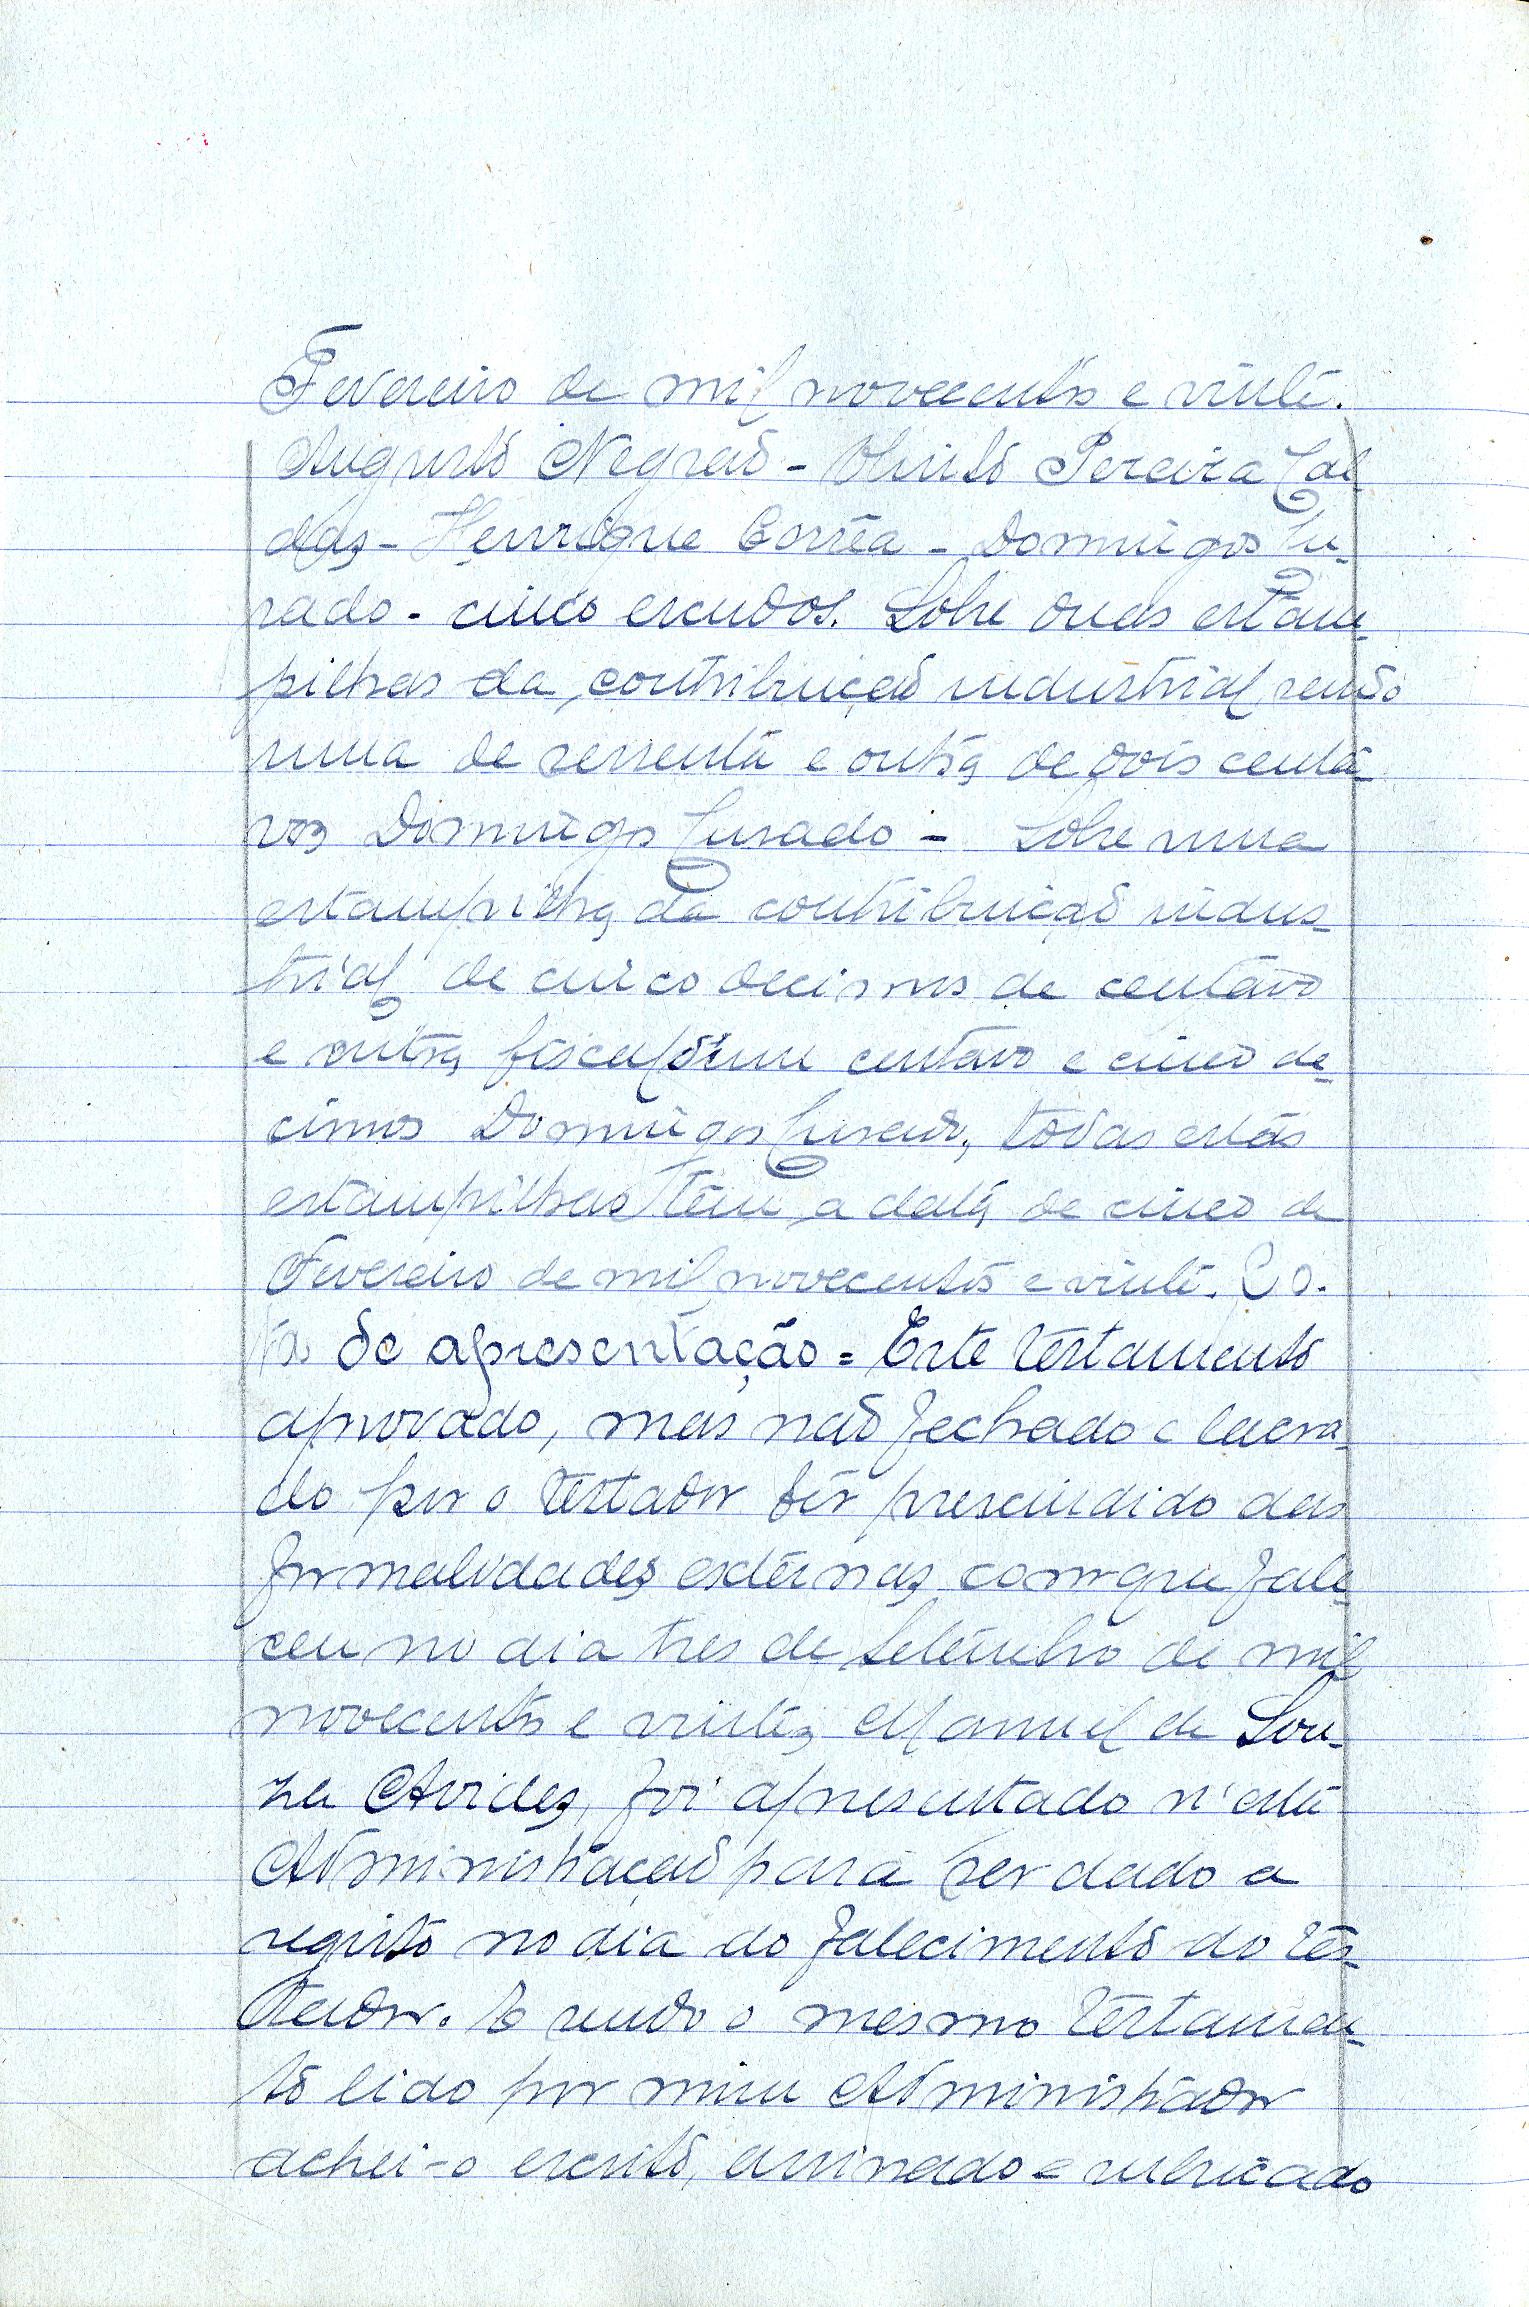 Fevereiro de mil novecentos e vinte.
Augusto Negrão - Olinto Pereira Cal-
das - Henrique Corrêa - Domingos Cu-
rado - cinco escudos. Sobre duas estam-
pilhas da contribuição industrial, sendo
uma de sessenta e outra de dois centa-
vos Domingos Curado - Sobre uma
estampilha da contribuição indus-
trial de cinco decimos de centavo
e outra fiscal d'um centavo e cinco de-
cimos Domingos Curado, todas estas
estampilhas têm a data de cinco de
Fevereiro de mil novecentos e vinte. Co.
ta de apresentação = Este testamento
aprovado, mas não fechado e lacra-
do por o testador têr prescindido das
formalidades externas com que fale-
ceu no dia tres de Setembro de mil
novecentos e vinte, Manuel de Sou-
za Avides, foi apresentado n'esta
Administração para ser dado a
registo no dia do falecimento do tes-
tador. E sendo o mesmo testamen-
to lido por mim Administrador
achei-o escrito, assinado e rubricado